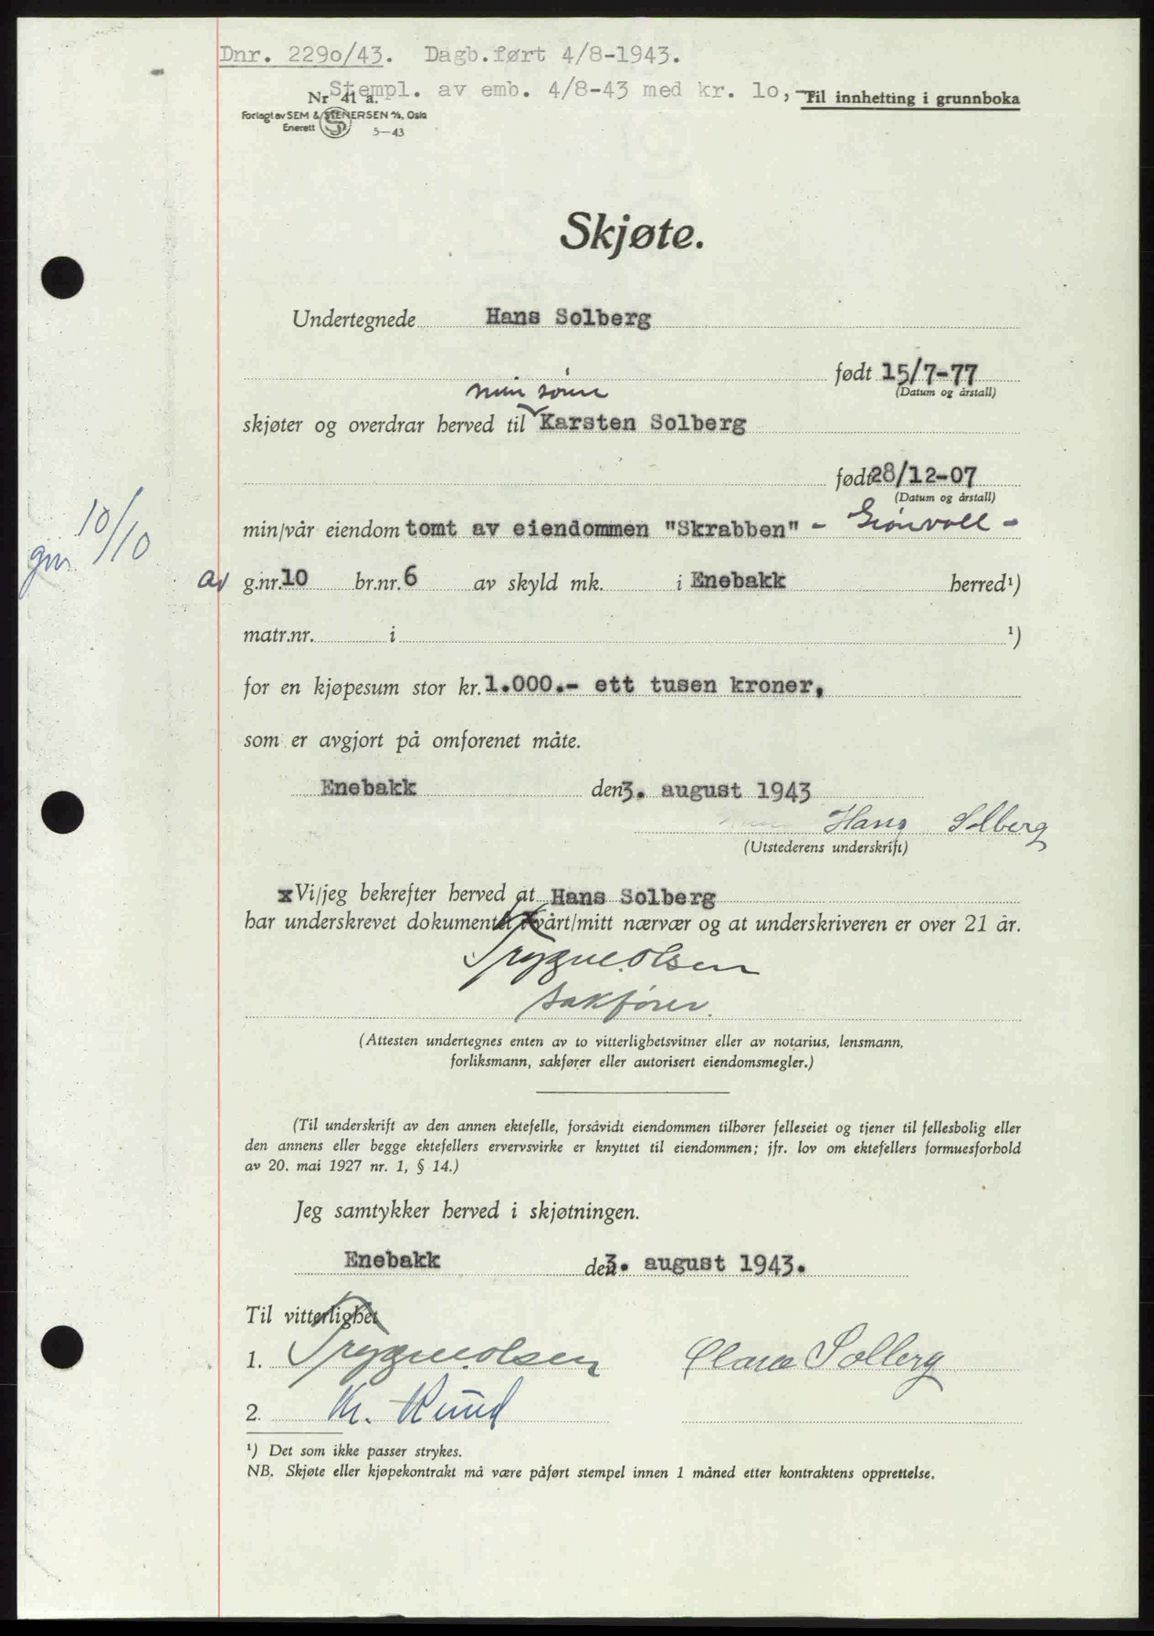 Dnr. 2290/43. Dagb.ført 4/8-1943.
Stempl. av emb. 4/8-43 med kr. 10,-
Nr 41 a.
Til innhefting i grunnboka
Forlagt av SEM & STENERSEN A/S, Oslo
Enerett S 5-43
Skjøte.
Undertegnede Hans Solberg
født 15/7-77
(Datum og årstall)
min sønn
skjøter og overdrar herved til Karsten Solberg
født 28/12-07
(Datum og årstall)
10/10
min/vår eiendom tomt av eiendommen "Skrabben" - Grønvoll -
av g.nr. 10 br.nr. 6 av skyld mk. i Enebakk herred¹)
matr.nr. i ¹)
for en kjøpesum stor kr. 1.000.- ett tusen kroner,
som er avgjort på omforenet måte.
Enebakk den 3. august 1943
Hans Solberg
(Utstederens underskrift)
x Vi/jeg bekrefter herved at Hans Solberg
har underskrevet dokumentet i vårt/mitt nærvær og at underskriveren er over 21 år.
Trygve Olsen
sakfører.
(Attesten undertegnes enten av to vitterlighetsvitner eller av notarius, lensmann,
forliksmann, sakfører eller autorisert eiendomsmegler.)
(Til underskrift av den annen ektefelle, forsåvidt eiendommen tilhører felleseiet og tjener til fellesbolig eller
den annens eller begge ektefellers ervervsvirke er knyttet til eiendommen; jfr. lov om ektefellers formuesforhold
av 20. mai 1927 nr. 1, § 14.)
Jeg samtykker herved i skjøtningen.
Enebakk den 3. august 1943.
Til vitterlighet
1. Trygve Olsen Clara Solberg
2. Kr. Ruud
¹) Det som ikke passer strykes.
NB. Skjøte eller kjøpekontrakt må være påført stempel innen 1 måned etter kontraktens opprettelse.